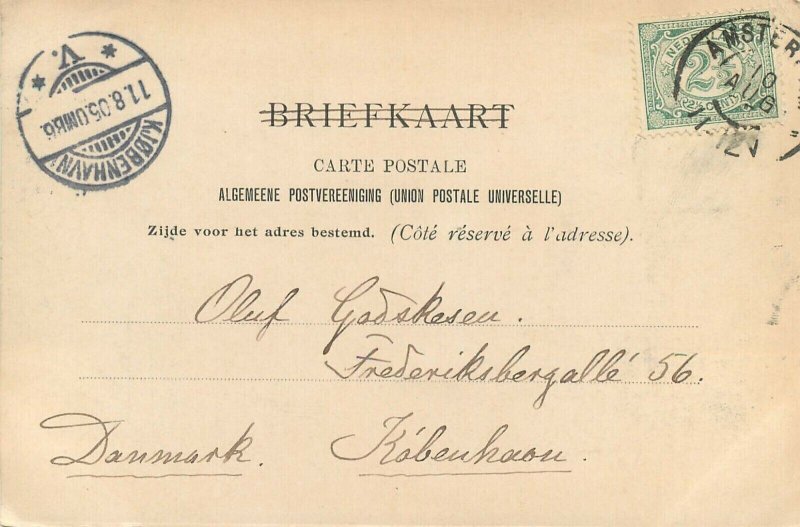 V.
11.8.05.OMB6.
KJØBENHAVN
NEDERLAND
2½
2½ CENT
AMSTER
10
AUG
BRIEFKAART
CARTE POSTALE
ALGEMEENE POSTVEREENIGING (UNION POSTALE UNIVERSELLE)
Zijde voor het adres bestemd. (Côté réservé à l'adresse).
Oluf Godskesen.
Frederiksbergallé 56.
Danmark. København.